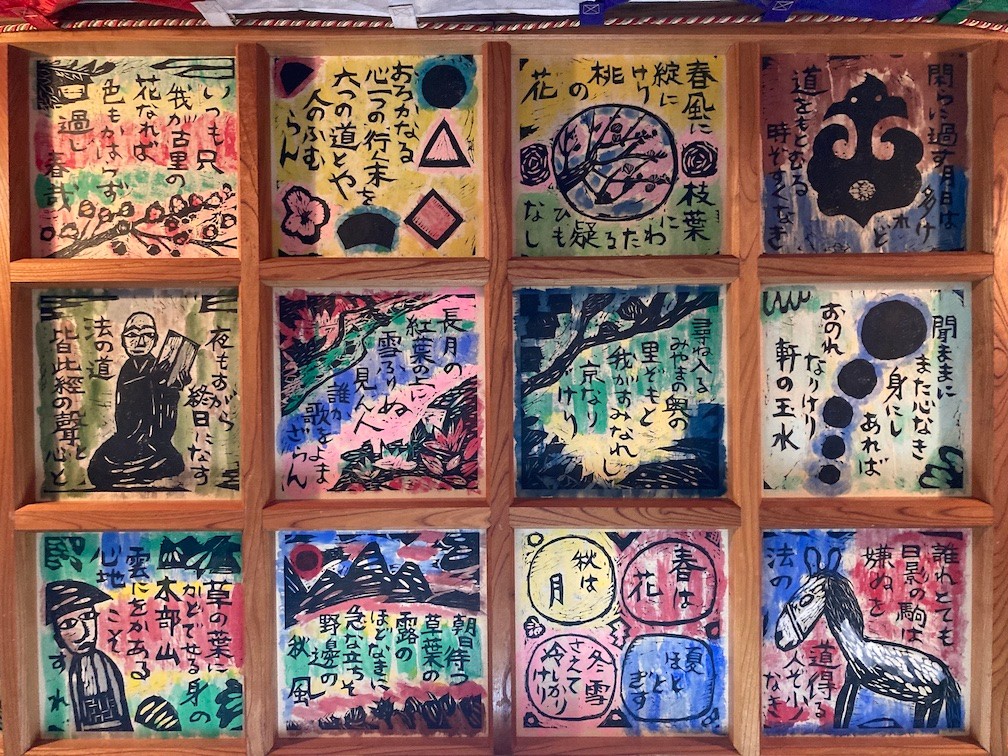 閑つに過す月日は
多けれど
道をもとむる
時ぞすくなき
春風に
綻に
けり
桃の
花
枝葉
に
わたる
疑
ひも
なし
おろかなる
心一つの行末を
六つの道とや
人のふむ
らん
いつも只
我が古里の
花なれば
色もかはらず
過し春哉
聞ままに
また心なき
身にし
あれば
おのれ
なりけり
軒の玉水
尋ね入る
みやまの奥の
里ぞもと
我がすみなれし
京なり
けり
長月の
紅葉の上に
雪ふりぬ
見ん人
誰か
歌をよま
ざらん
夜もすがら
終日になす
法の道
皆此經の聲と心と
誰れとても
日影の駒は
嫌ぬを
法の
道得る
人そ少なき
春は
花
夏
ほとと
ぎす
秋は
月
冬雪
さえて
冷しかり
けり
朝日待つ
草葉の
露の
ほどなきに
急な立ちそ
野邊の
秋風
草の葉に
かどでせる身の
木部山
雲にをかある
心地こそ
すれ